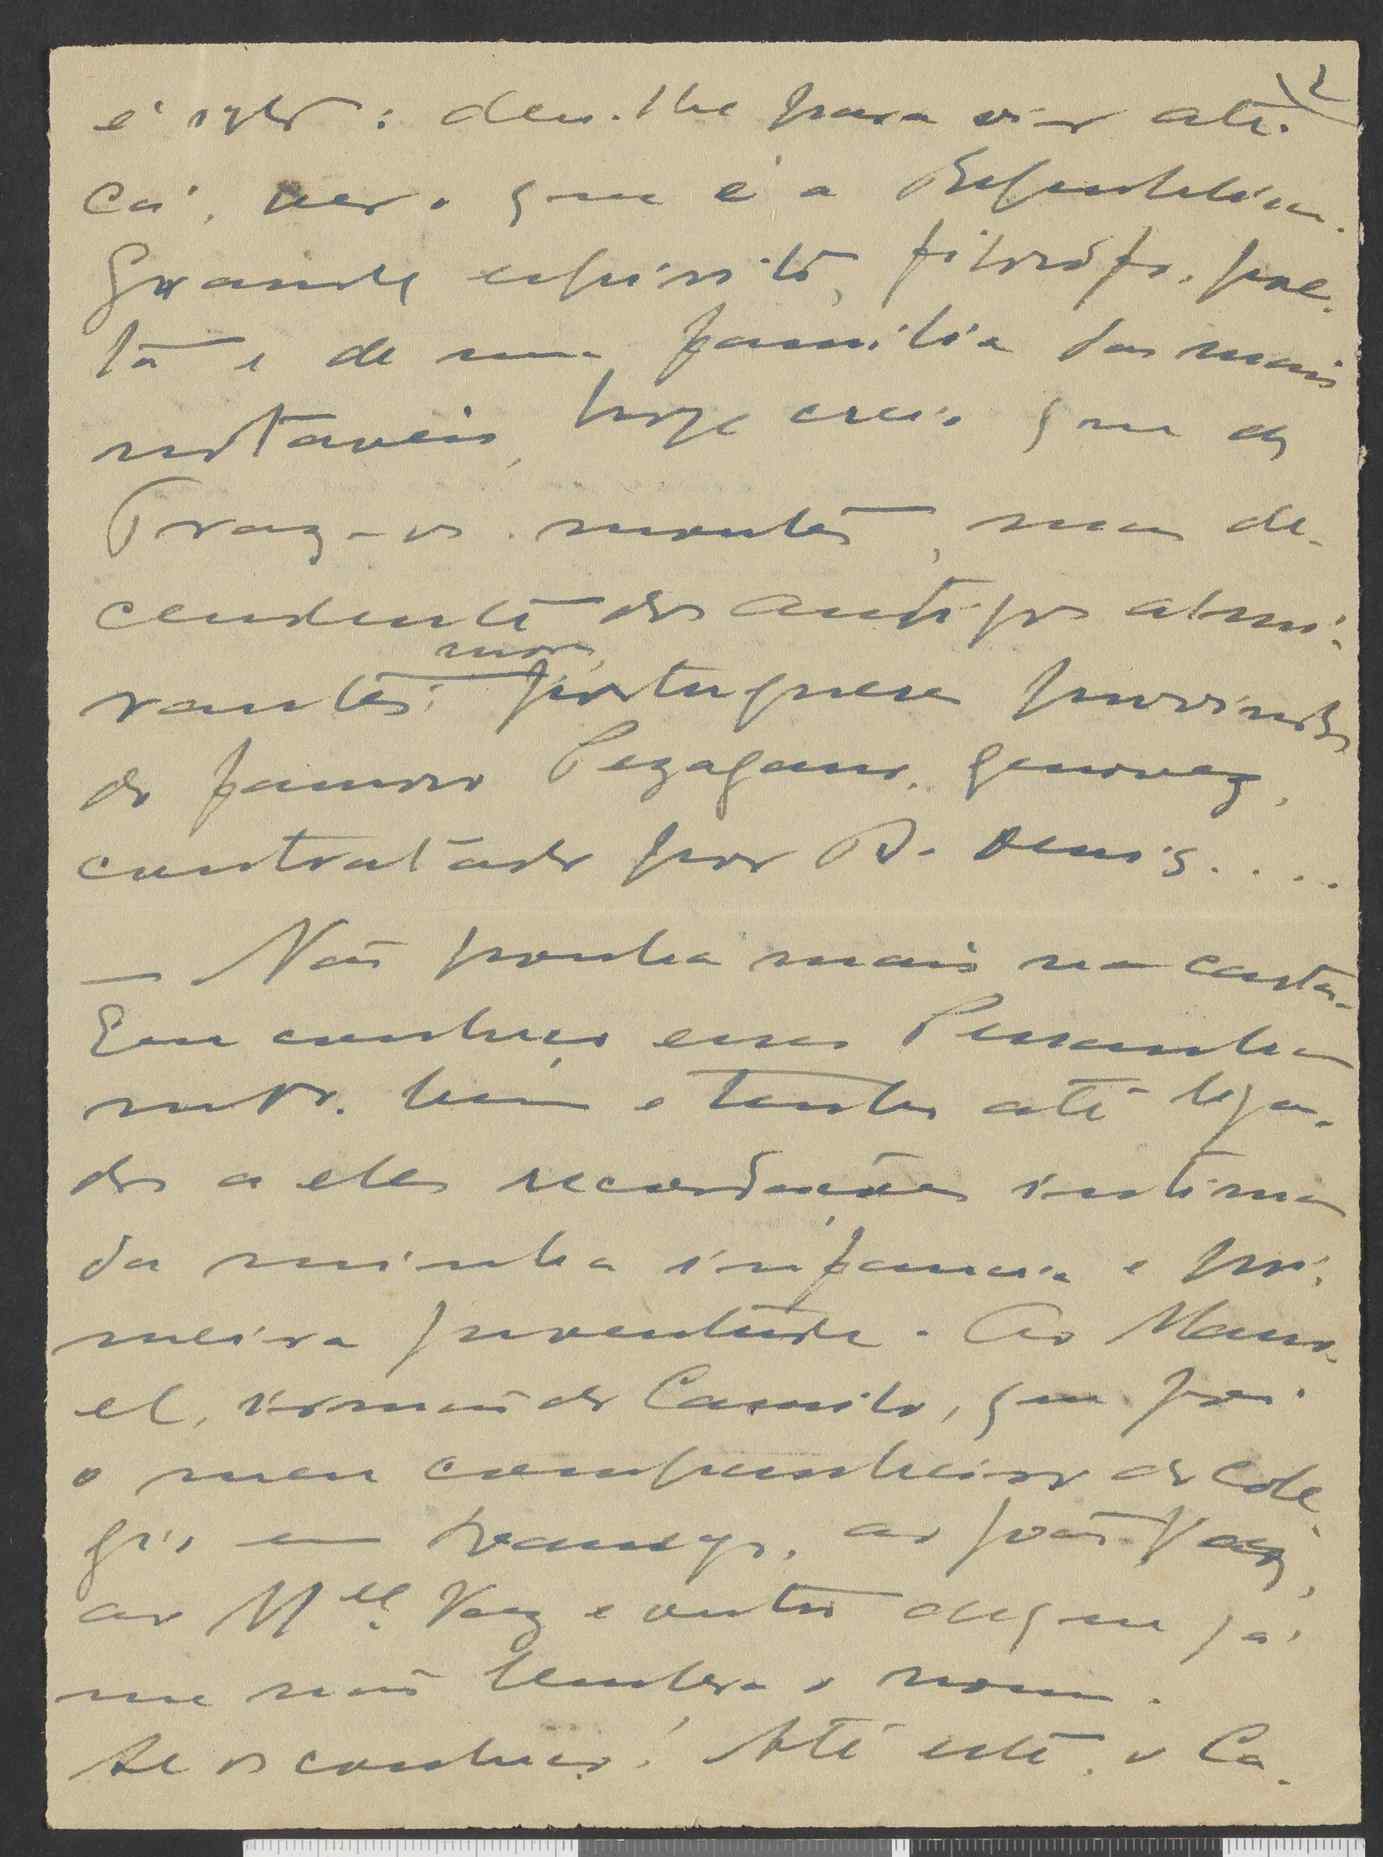 2
é isto: deu-lhe para vir até
cá, ver o que é a Republica.
Grande espirito, filosofo, poe-
ta e de uma familia das mais
notaveis, hoje creio que de
Traz-os-montes, mas de-
cendente dos antigos almi-
rantes móres portugueses provindos
do famoso Pezagano, genovez,
contratado por D. Denis....
— Não ponha mais na carta.
Eu conheço esses Pessanhas
muito bem e tenho até liga-
dos a eles recordações intimas
da minha infancia e pri-
meira juventude. Ao Mano-
el, irmão do Camilo, que foi
o meu companheiro do cole-
gio em Lamego, ao João Vaz,
ao Mel. Vaz e outro de que já
me não lembra o nome.
Se os conheço! Até este, o Ca-